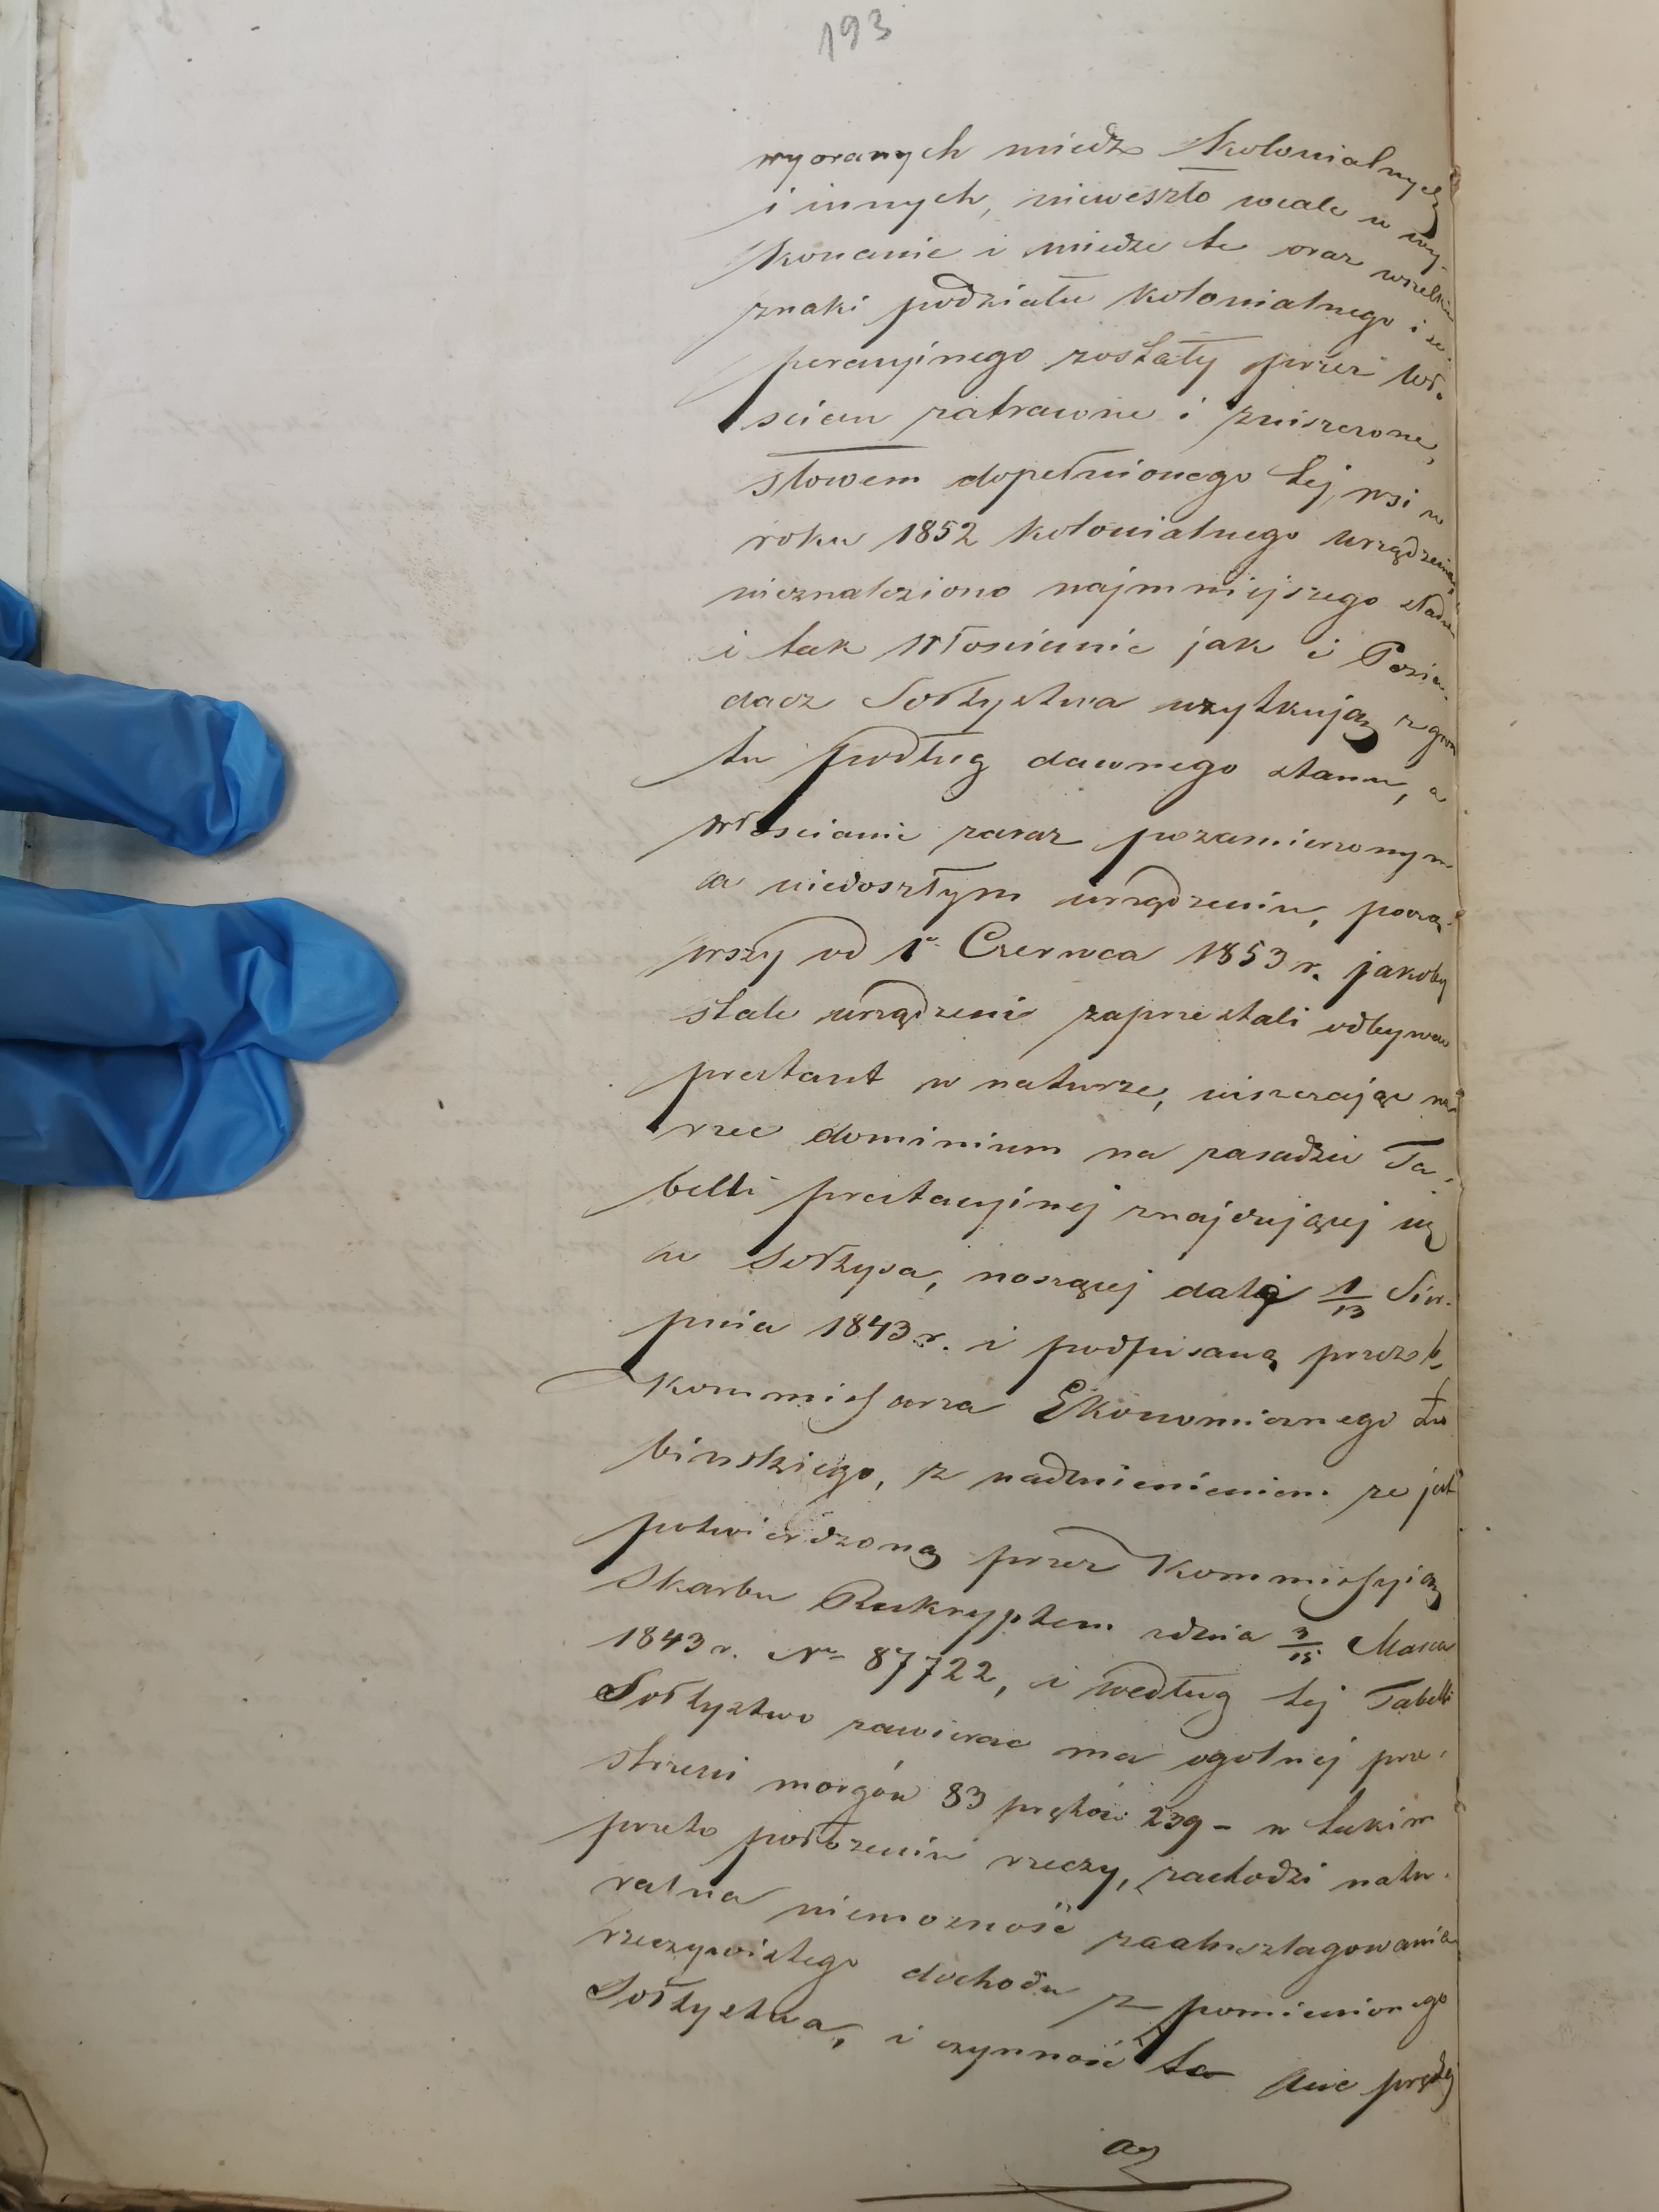 193
wyoranych miedz kolonialnych
i innych, nieweszło wcale w wy-
konanie i miedze te oraz wszelkie
znaki podziału kolonialnego i se-
peracyjnego zostały przez wło-
scian zatracone i zniszczone,
słowem dopełnionego tej wsi w
roku 1852 kolonialnego urządzenia,
nieznaleziono najmniejszego śladu
i tak Włościanie jak i Posia-
dacz Sołtystwa użytkują z grun
tu podług dawnego stanu, a
włościanie zaraz pozamierzonym
a niedoszłym urządzeniu, począ-
wszy od 1o Czerwca 1853 r. jakoby
stale urządzeni zaprzestali odbywać
prestant w naturze, uiszczając na
rzec dominium na zasadzie Ta-
belli prestacyjnej znajdującej się
u Sołtysa, noszącej datę 1/13 Sier-
pnia 1843 r. i podpisaną przez b,
Kommissarza Ekonomicznego Łu
binskiego, z nadmienieniem ze jest
potwierdzoną przez Kommissyią
Skarbu Reskryptem zdnia 3/15 Marca
1843 r. No 87722, i według tej Tabelli
Sołtystwo zawierac ma ogolnej prze-
strzeni morgów 83 prętów 239 - w takim
przeto położeniu rzeczy, zachodzi natu-
ralna niemozność zaasztagowania
rzeczywistego dochodu z pomienionego
Sołtystwa, i czynność ta nie prędzej